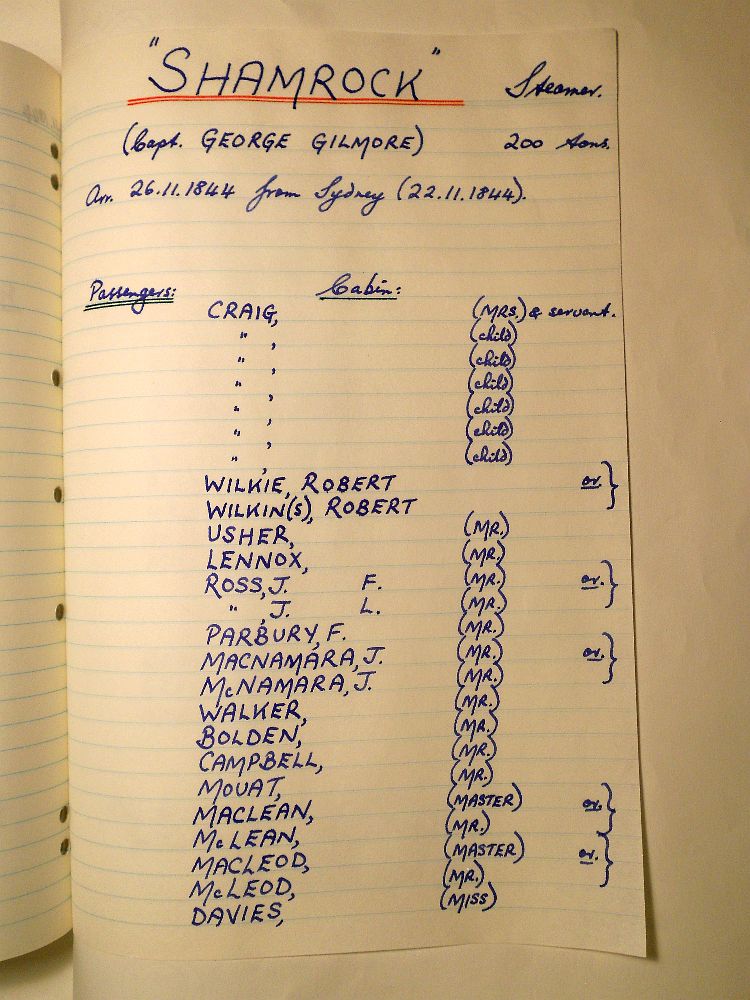 "SHAMROCK" Steamer.
(Capt. GEORGE GILMORE) 200 tons.
Arr. 26.11.1844 from Sydney (22.11.1844).
Passengers: Cabin:
CRAIG, (MRS.) & servant.
" , (child)
" , (child)
" , (child)
" , (child)
" , (child)
" , (child)
WILKIE, ROBERT or. }
WILKIN(S), ROBERT
USHER, (MR.)
LENNOX, (MR.)
ROSS, J. F. (MR.) or. }
" , J. L. (MR.)
PARBURY, F. (MR.)
MACNAMARA, J. (MR.) or. }
McNAMARA, J. (MR.)
WALKER, (MR.)
BOLDEN, (MR.)
CAMPBELL, (MR.)
MOUAT, (MR.)
MACLEAN, (MASTER) or. }
McLEAN, (MR.)
MACLEOD, (MASTER) or. }
McLEOD, (MR.)
DAVIES, (MISS)